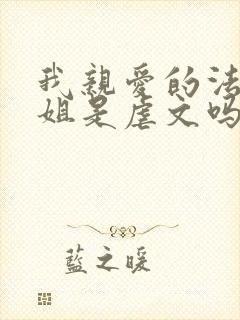 我親愛的法
姐是虐文吗
藍之暖